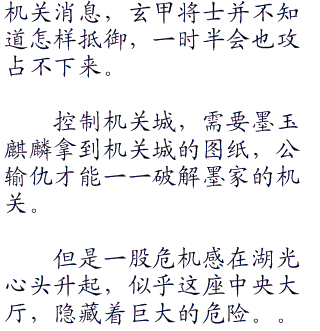 机关消息，玄甲将士并不知
道怎样抵御，一时半会也攻
占不下来。
控制机关城，需要墨玉
麒麟拿到机关城的图纸，公
输仇才能一一破解墨家的机
关。
但是一股危机感在湖光
心头升起，似乎这座中央大
厅，隐藏着巨大的危险。。